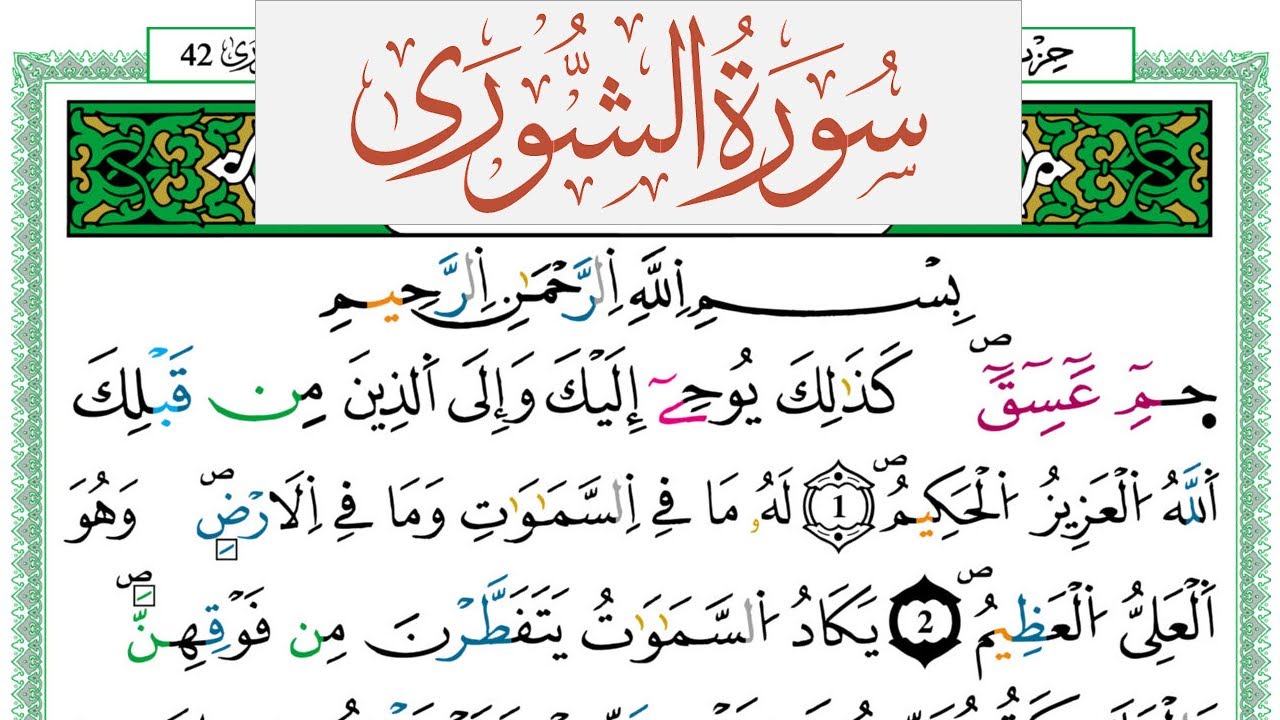 42
سُورَةُ الشُّورَى
بِسْمِ اِللَّهِ اِلرَّحْمَٰنِ اِلرَّحِيمِ
حمِٓ عَٓسِٓقَٓۖ كَذَٰلِكَ يُوحِےٓ إِلَيْكَ وَإِلَى اَلذِينَ مِن قَبْلِكَ
اَللَّهُ اُلْعَزِيزُ اُلْحَكِيمُۖ 1 لَهُۥ مَا فِے اِلسَّمَٰوَٰتِ وَمَا فِے اِلَارْضِۖ وَهُوَ
اَلْعَلِيُّ اُلْعَظِيمُۖ 2 يَكَادُ اُلسَّمَٰوَٰتُ يَتَفَطَّرْنَ مِن فَوْقِهِنَّۖ